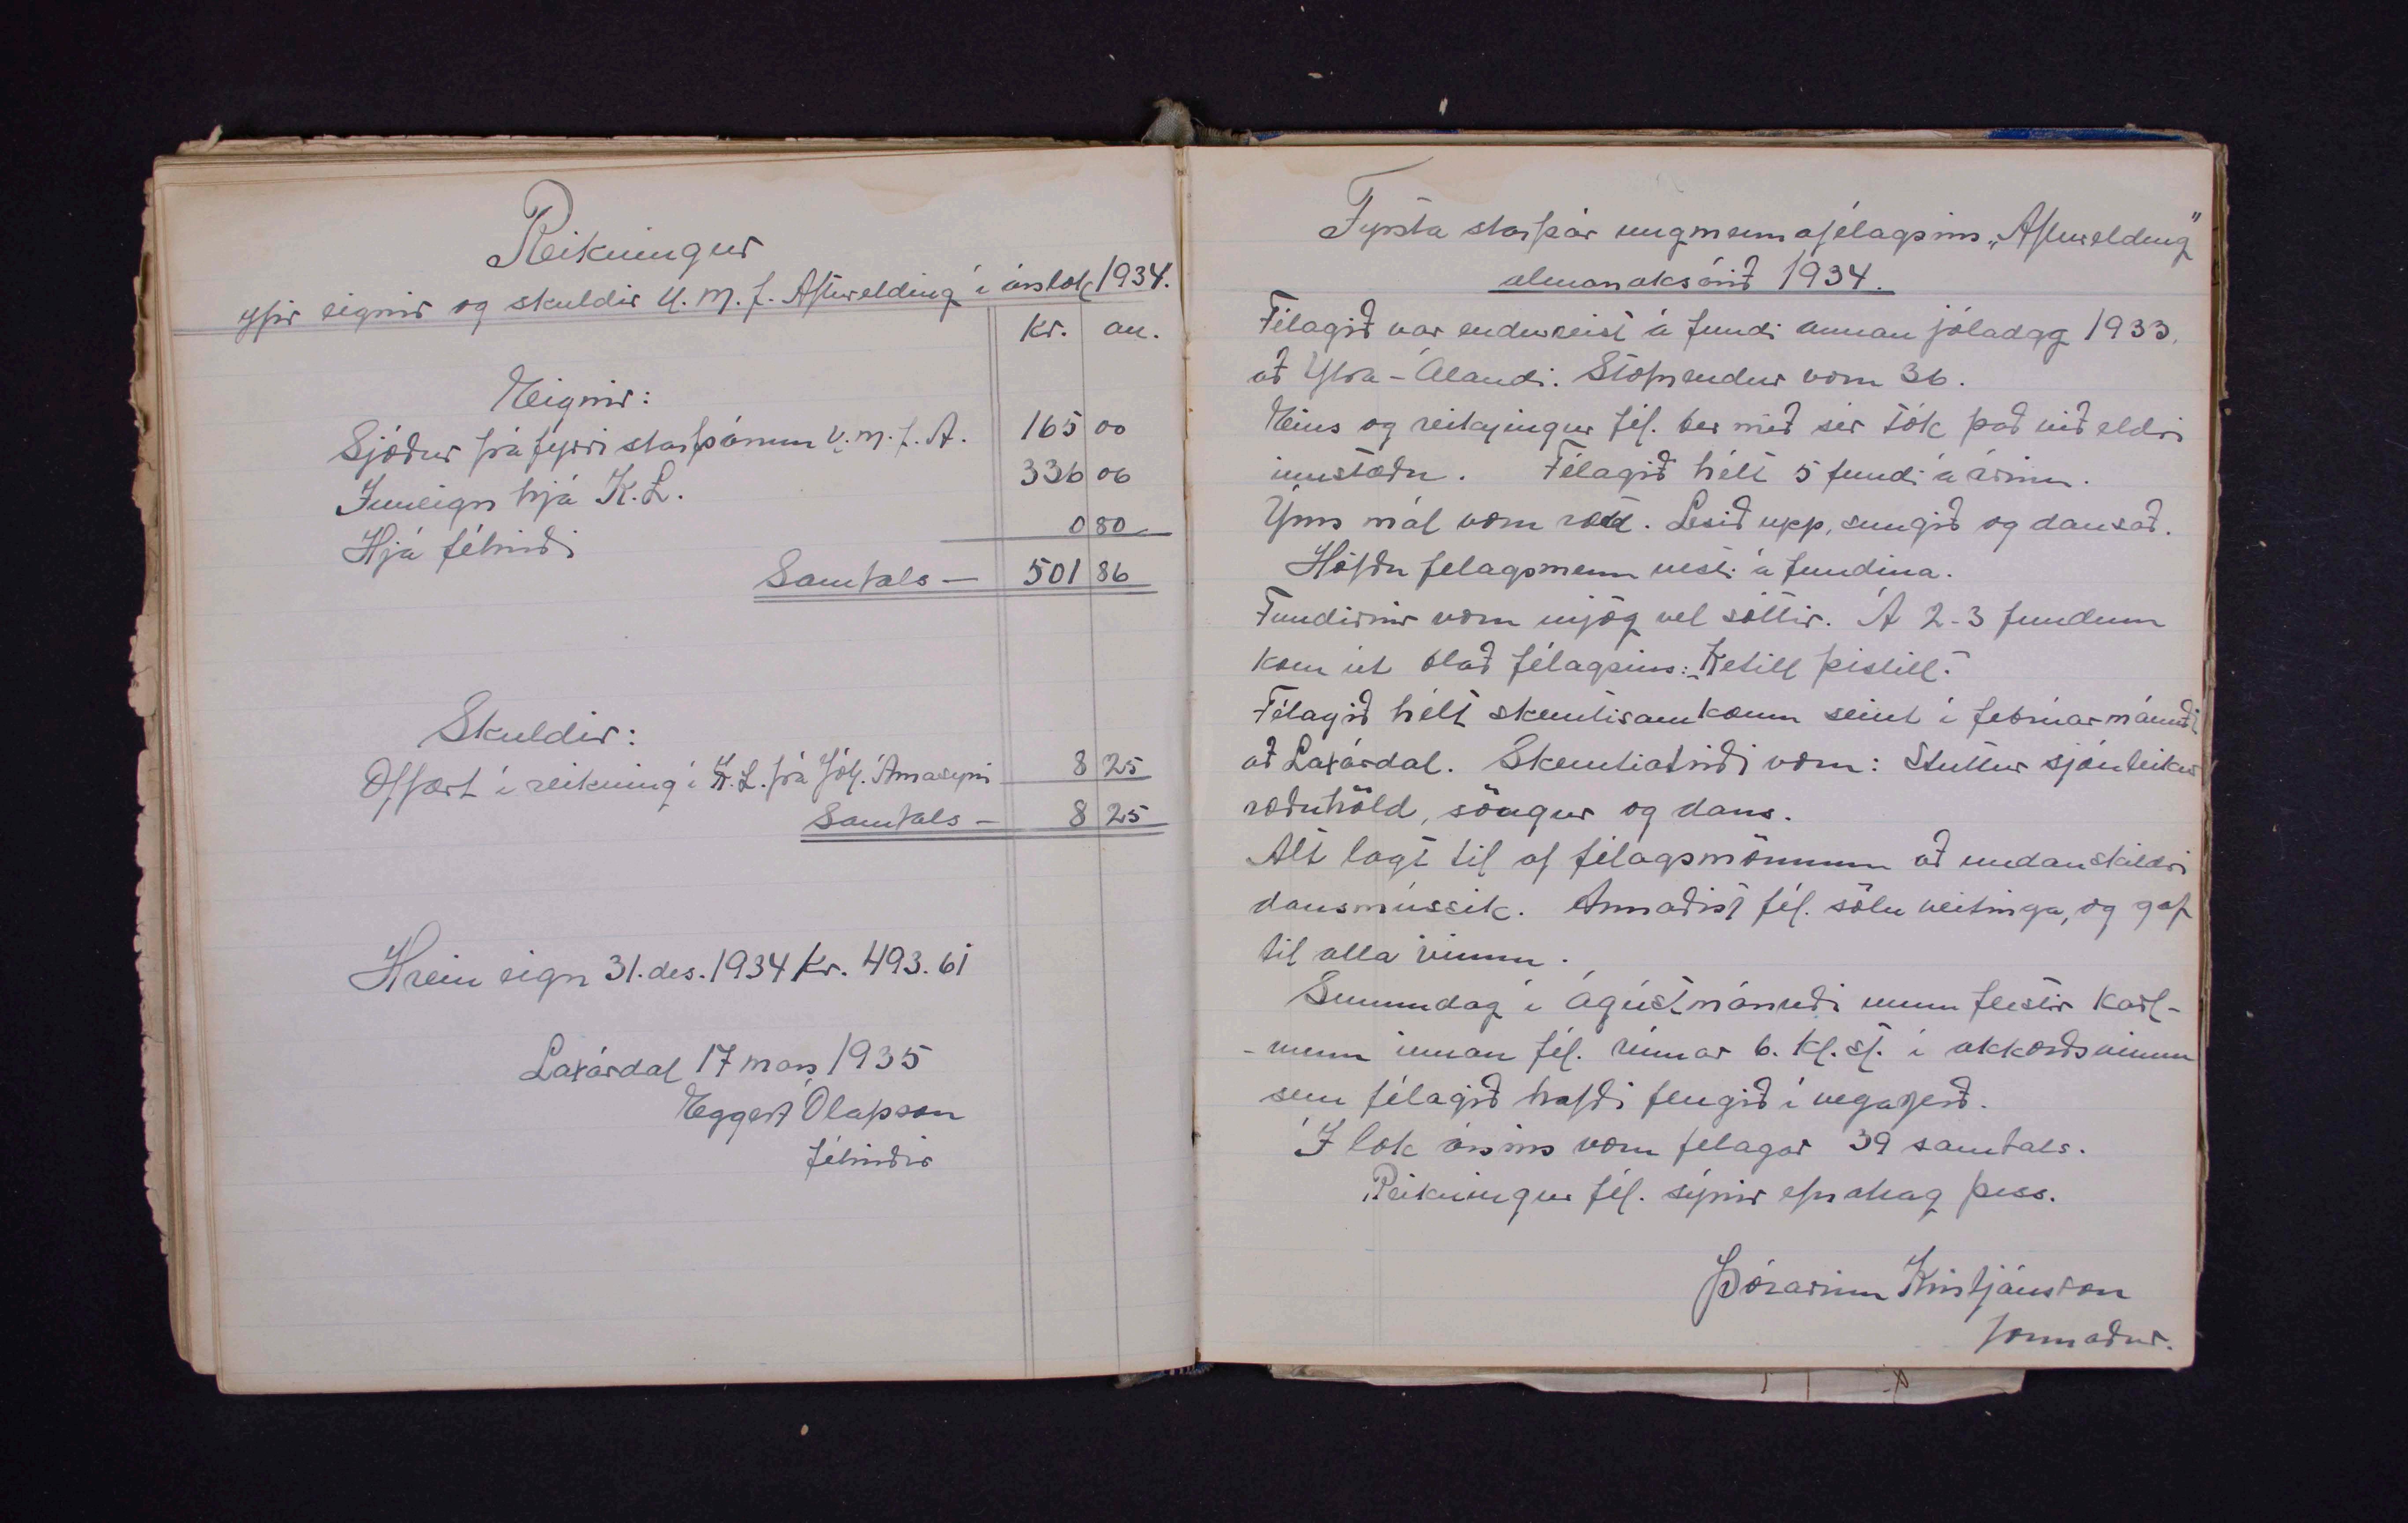 Reikningur
yfir eignir og skuldir U.M.F. Afturelding í árslok 1934.
Kr. au.
Eignir:
Sjóður frá fyrri starfsárum U.M.F.A. 165 00
Inneign hjá K.L. 336 06
Hjá féhirði 0 80
Samtals — 501 86
Skuldir:
Offært í reikning í K.L. frá Jóh. Árnasyni 8 25
Samtals — 8 25
Hrein eign 31. des. 1934 Kr. 493.61
Laxárdal 17 mars 1935
Eggert Ólafsson
féhirðir
Fyrsta starfsár ungmennafélagsins „Afturelding"
almanaksárið 1934.
Félagið var endurreist á fundi annan jóladag 1933.
að Ytra-Álandi. Stofnendur voru 36.
Eins og reikningur fél. ber með sér tók það við eldri
innstæðu. Félagið hélt 5 fundi á árinu.
Ýms mál voru rædd. Lesið upp, sungið og dansað.
Höfðu felagsmenn nesti á fundina.
Fundirnir voru mjög vel sóttir. Á 2-3 fundum
kom út blað félagsins: „Ketill þistill."
Félagið hélt skemtisamkomu seint í febrúarmánuði
að Laxárdal. Skemtiatriði voru: Stuttur sjónleikur
ræðuhöld, söngur og dans.
Alt lagt til af félagsmönnum að undanskildri
dansmússik. Annaðist fél. sölu veitinga, og gaf
til alla vinnu.
Sunnudag í ágústmánuði unnu flestir karl-
-menn innan fél. rúmar 6. kl.st. í akkorðsvinnu
sem félagið hafði fengið í vegagerð.
Í lok ársins voru félagar 39 samtals.
Reikningur fél. sýnir efnahag þess.
Þórarinn Kristjánsson
formaður.